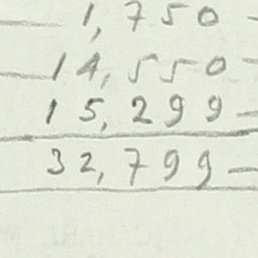 1,750 -
14,550 -
15,299 -
32,799 -